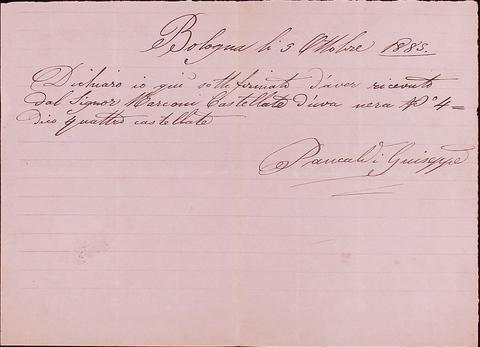 Bologna li 5 Ottobre 1885.
Dichiaro io quì sottofirmato d'aver ricevuto
dal Signor Marconi Castellate d'uva nera No 4=
dico quattro castellate
Pancaldi Guiseppe